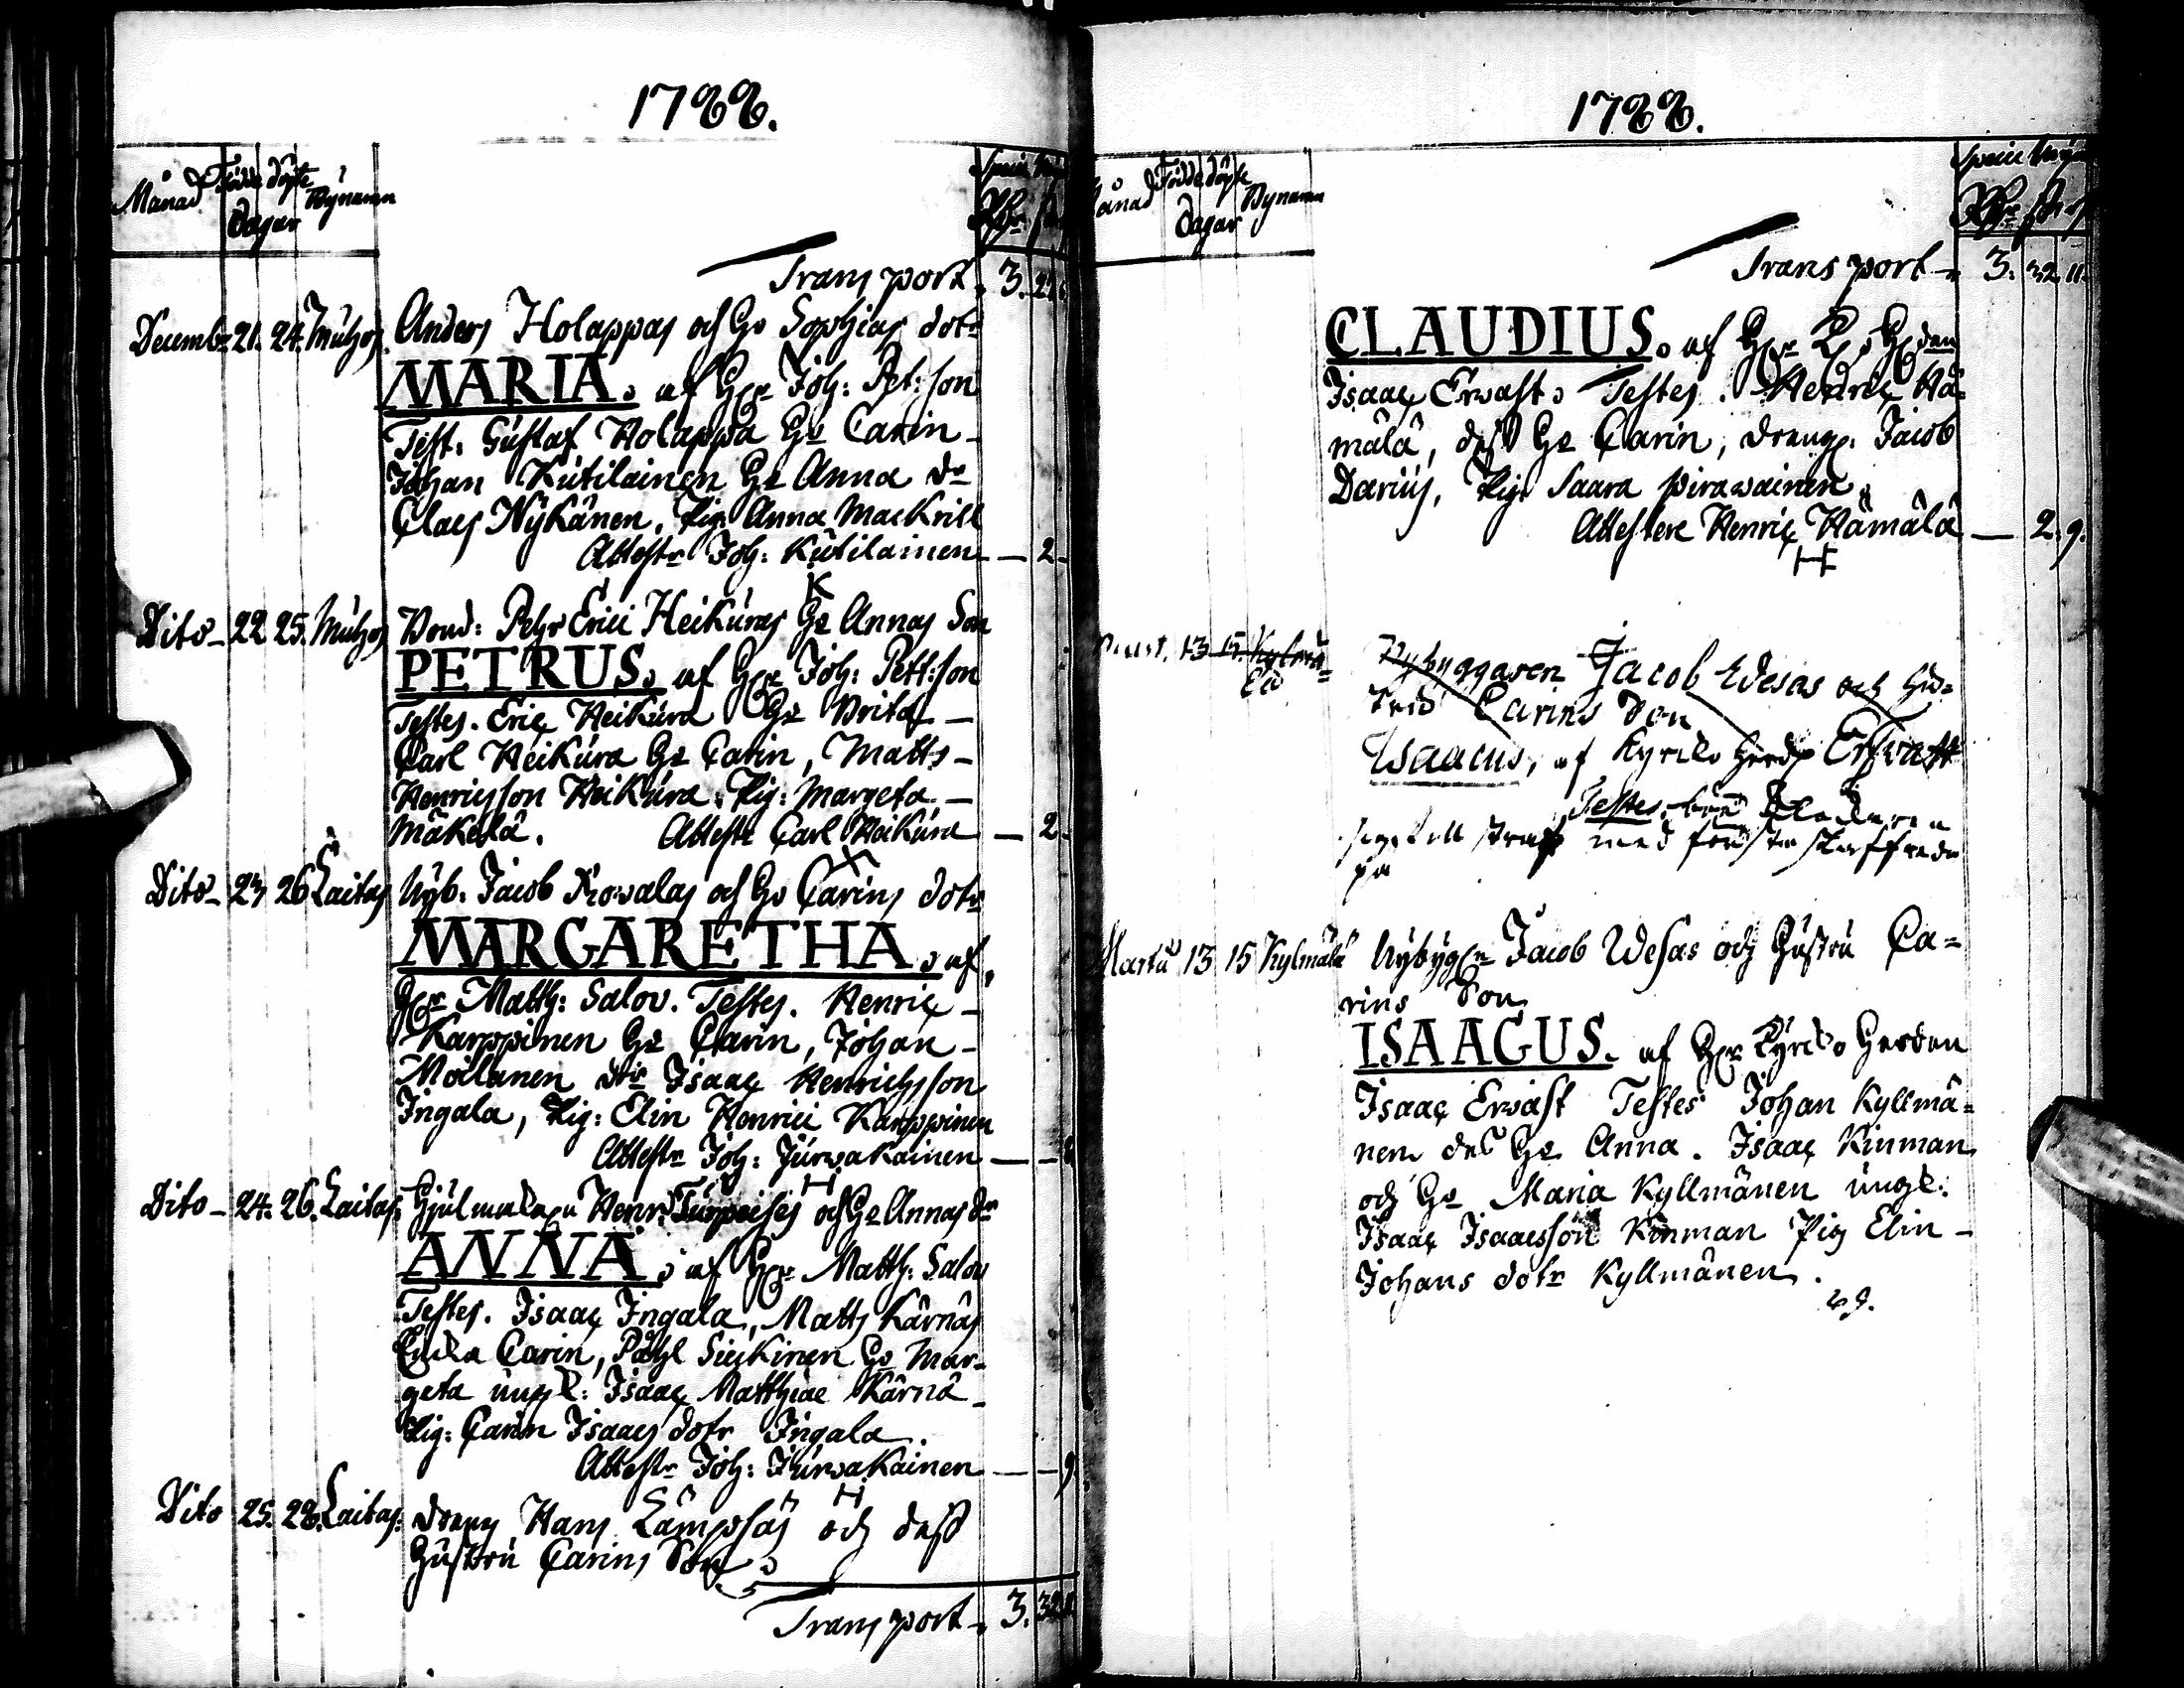 1788.
Månad Födde döpte Bynamn
dagar
Transport 3.
Decembr 21. 24. Muhos. Anders Holappas och Hu Sophias dotr
MARIA. af Joh: Pet:son
Test: Gustaf Holappa Hu Carin
Johan Kutilainen Hu Anna dr
Claes Nykänen. Pig: Anna Mackrill
Attestr Joh: Kutilainen — 2
K
Dito 22 25. Muhos Bond: Pehr Erici Heikuras Hu Annas Son
PETRUS. af Joh: Pett:son
Testes. Eric Heikura Hu Brita
Carl Heikura Hu Carin, Matts
Henricsson Heikura. Pig: Margeta
Mäkelä. Attestr Carl Heikura — 2
Dito 23 26 Laitas Nyb: Jacob Rowalas och Hu Carins dotr
MARGARETHA. af
Matth: Salov. Testes. Henric
Karppinen Hu Carin, Johan
Moilanen dr Isaac Henrichsson
Ingala, Pig: Elin Henrici Karppinen
Attestr Joh: Jurwakainen —
H
Dito 24. 26. Laitas. Henr: och Hu Annas dr
ANNA. af Matth: Salov
Testes. Isaac Ingala, Matts Kärnäs
Enka Carin, Påhl Sieikinen Hu Mar-
geta ungk: Isaac Matthiae Kärnä
Pig: Carin Isaacs dotr Ingala.
Attestr Joh: Jurwakainen — 9
H
Dito 25. 28. Laitas: dreng Hans Lämpsäs och dess
Hustru Carins Son
Transport 3. 32
1788.
Månad Födde döpte Bynamn
dagar
Transport 3. 32 11.
CLAUDIUS. af
Isaac Erwast. Testes. Henric Hä-
mälä, dess Hu Carin, dreng. Jacob
Darius, Pig: Saara Pirawainen
Attestere Henric Hämälä — 2. 9.
H
13 15. Kylmä- Nybyggaren Jacob Wesas och Hu-
stru Carins Son
Isaacus, af Kyrko Herde Erwast
Testes
med första
på
Martii 13 15 Kylmälä Nybygg Jacob Wesas och Hustru Ca-
rins Son
ISAACUS. af Kyrko Herden
Isaac Erwast Testes Johan Kyllmä-
nen des Hu Anna. Isaac Kinman
och Hu Maria Kyllmänen ungk:
Isaac Isaacsson Kinman Pig Elin
Johans dotr Kyllmänen.